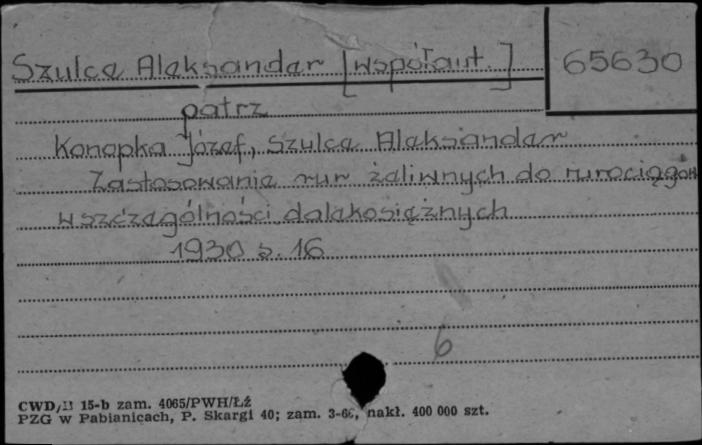 Szulce Aleksander [współaut.] 65630
patrz
Konopka Józef, Szulce Aleksander
Zastosowanie rur żeliwnych do rurociągów
w szczególności dalekosiężnych
1930 s. 16
6
CWD/B 15-b zam. 4065/PWH/Łź
PZG w Pabianicach, P. Skargi 40; zam. 3-66, nakł. 400 000 szt.